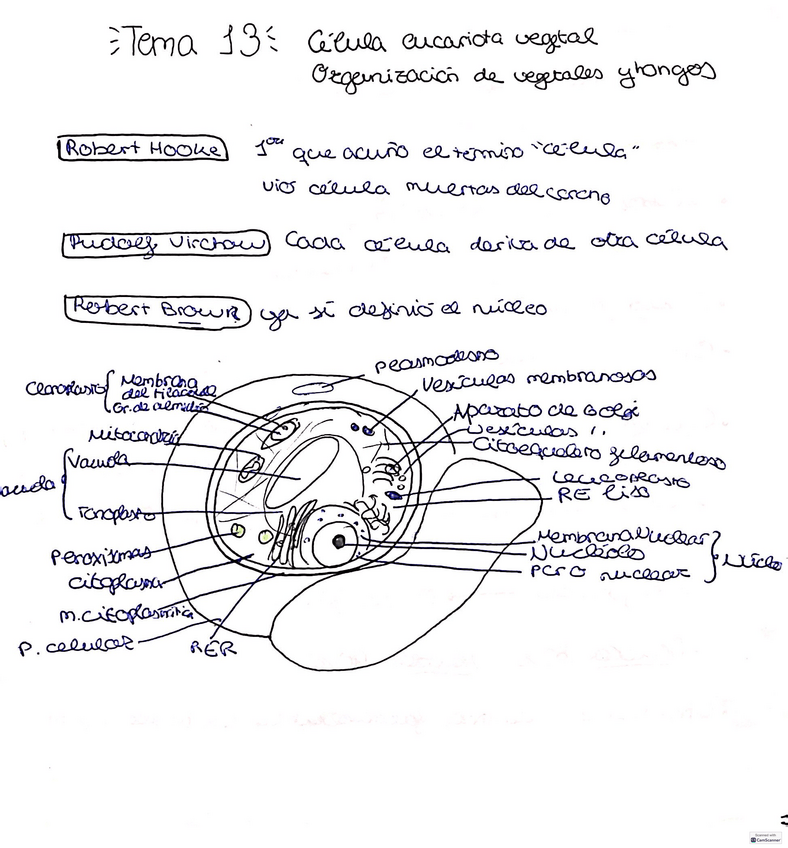 Tema 13
Célula eucariota vegetal
Organización de vegetales y hongos
Robert Hooke 1ero que acuñó el término "célula"
vio célula muertas del corcho
Rudolf Virchow Cada célula deriva de otra célula
Robert Brown ya sí definió el núcleo
Plasmodesmo
Vesículas membranosos
Cloroplasto
Membrana
del tilacoide
Gr. de almidón
Aparato de Golgi
Vesículas ''
Citoesqueleto filamentoso
Mitocondria
Vacuola
Leucoplasto
RE liso
Tonoplasto
Membrana Nuclear
Nucléolo
Poro nuclear
Núcleo
Peroxisomas
Citoplasma
m. citoplasmática
P. celular
RER
Scanned with
CamScanner